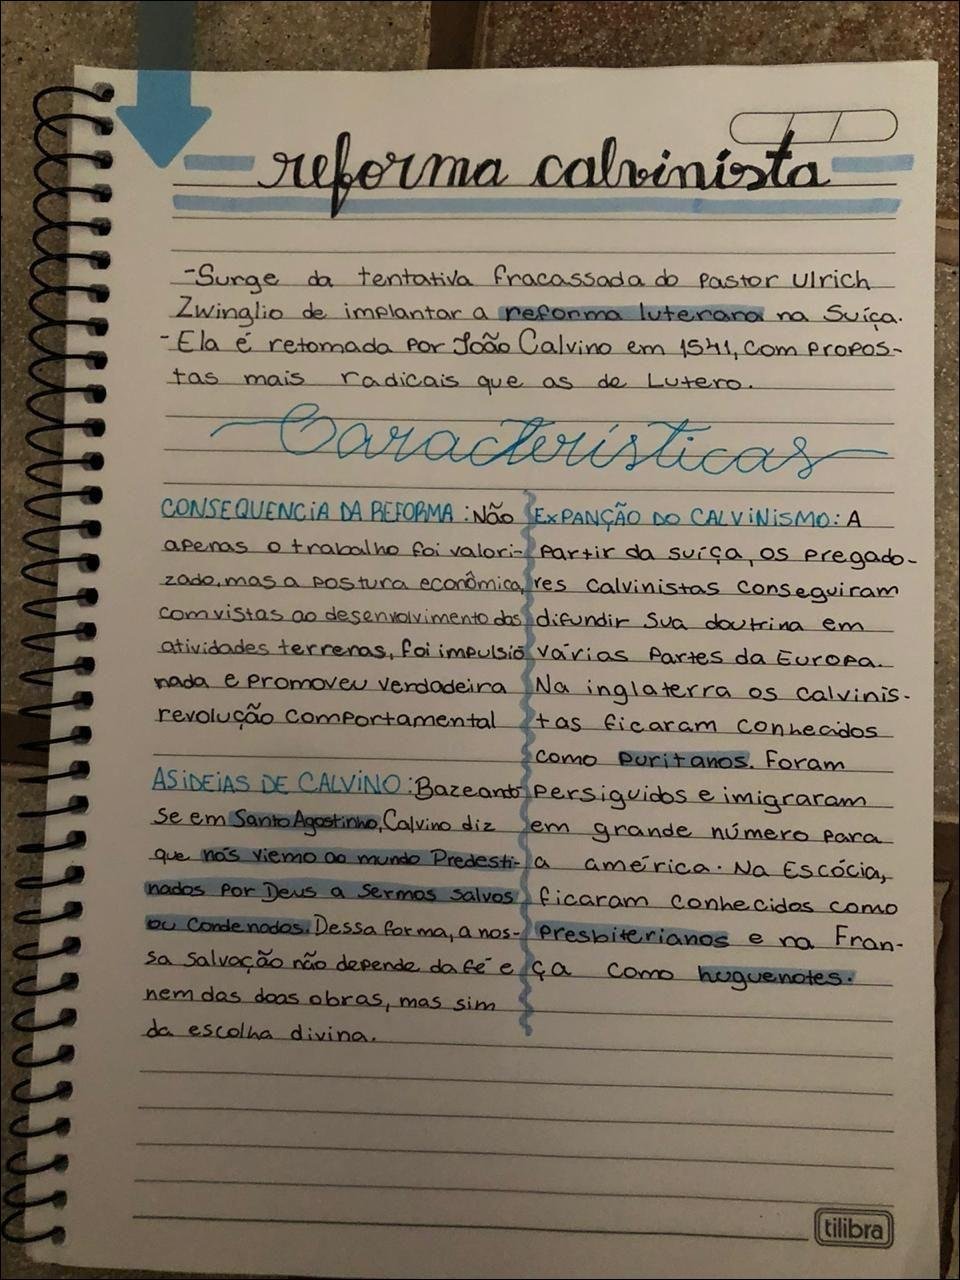 reforma calvinista
-Surge da tentativa fracassada do pastor Ulrich
Zwinglio de implantar a reforma luterana na Suíça.
-Ela é retomada por João Calvino em 1541, com propos-
tas mais radicais que as de Lutero.
Características
CONSEQUENCIA DA REFORMA: Não
apenas o trabalho foi valori-
zado, mas a postura econômica,
com vistas ao desenvolvimento das
atividades terrenas, foi impulsio
nada e promoveu verdadeira
revolução comportamental
AS IDEIAS DE CALVINO: Bazeando
se em Santo Agostinho, Calvino diz
que nós viemo ao mundo Predesti-
nados por Deus a sermos salvos
ou condenados. Dessa forma, a nos-
sa salvação não depende da fé e
nem das doas obras, mas sim
da escolha divina.
EXPANÇÃO DO CALVINISMO: A
partir da suíça, os pregado-
res calvinistas conseguiram
difundir sua doutrina em
várias partes da Europa.
Na inglaterra os calvinis-
tas ficaram conhecidos
como puritanos. Foram
persiguidos e imigraram
em grande número para
a américa. Na Escócia,
ficaram conhecidos como
presbiterianos e na Fran-
ça como huguenotes.
tilibra